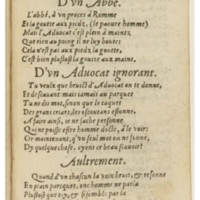 D'vn Abbé.
L'abbé, à vn proces à Romme
Et la goutte aux piedz, (le pauure homme)
Mais l'Aduocat s'est plein à maintz,
Que rien au poing il ne luy boutez
Cela n'est pas aux piedz la goutte,
C'est bien plustost la goutte aux mains.
D'vn Aduocat ignorant.
Tu veulx que bruict d'Aduocat on te donne,
Et de scauant mais iamais au parquet
Tu ne dis mot, sinon que le caquet
Des grans criars t'escouter estonne,
A faire ainsi, ie ne sache personne
Qui ne puisse estre homme docte, à le voir:
Or maintenant, qu'vn seul mot on ne sonne,
Dy quelque chose, ayons ce beau scauoir.
Aultrement.
Quand d'vn chascun la voix bruit, & resonne
En plain parquet, vne homme ne parla
Plustost que toy, & si semble par la